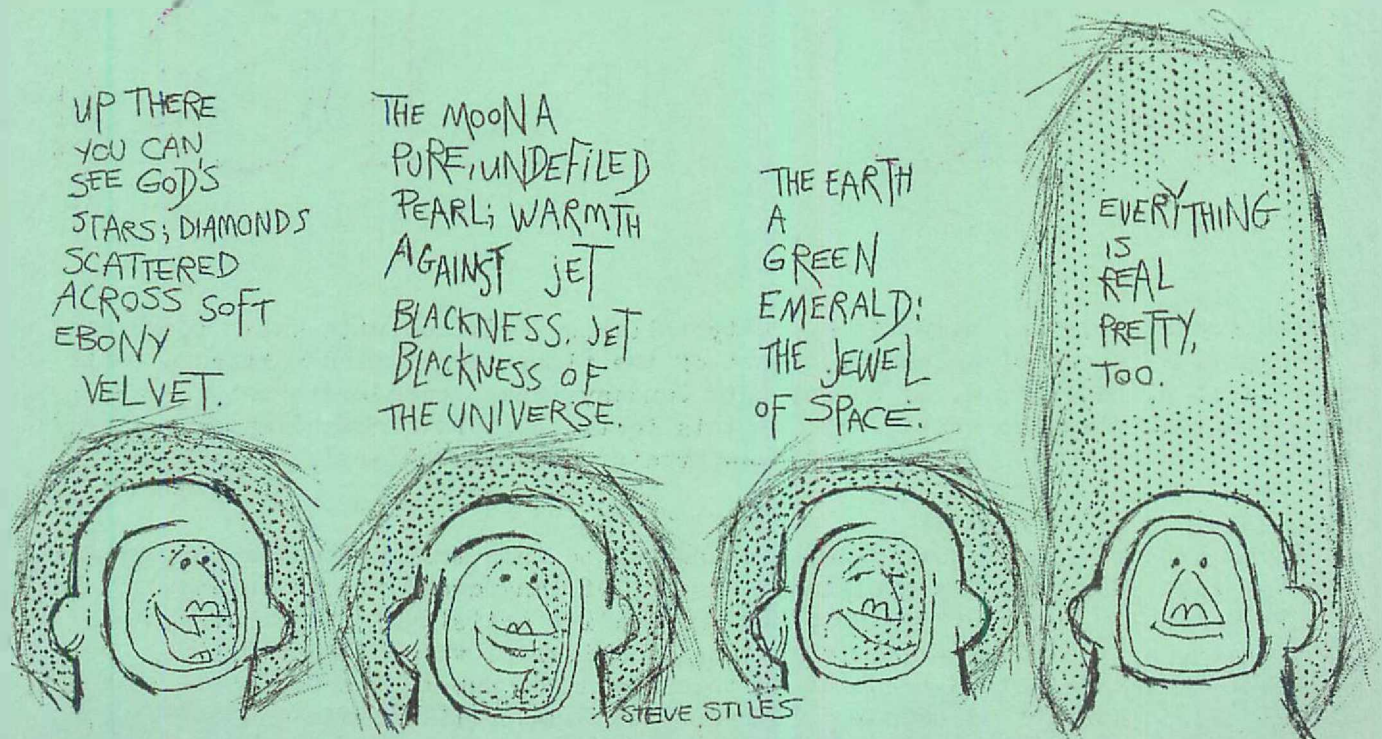 UP THERE
YOU CAN
SEE GOD'S
STARS; DIAMONDS
SCATTERED
ACROSS SOFT
EBONY
VELVET.
THE MOON A
PURE, UNDEFILED
PEARL; WARMTH
AGAINST JET
BLACKNESS. JET
BLACKNESS OF
THE UNIVERSE.
THE EARTH
A
GREEN
EMERALD:
THE JEWEL
OF SPACE.
EVERYTHING
IS
REAL
PRETTY,
TOO.
STEVE STILES